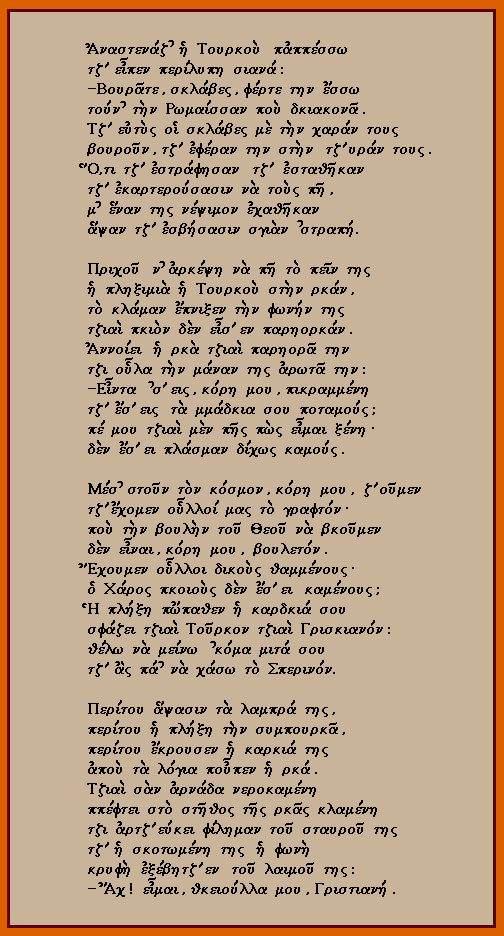 Ἀναστενάζ’ ἡ Τουρκοὺ πἀππέσσω
τζ’ εἶπεν περίλυπη σιανά:
–Βουρᾶτε, σκλάβες, φέρτε την ἔσσω
τούν’ τὴν Ρωμαίσσαν ποὺ δκιακονᾶ.
Τζ’ εὐτὺς οἱ σκλάβες μὲ τὴν χαράν τους
βουροῦν, τζ’ ἐφέραν την στὴν τζ’υράν τους.
Ὅ,τι τζ’ ἐστράφησαν τζ’ ἐσταθῆκαν
τζ’ ἐκαρτερούσασιν νὰ τοὺς πῆ,
μ’ ἕναν της νέψιμον ἐχαθῆκαν
ἅψαν τζ’ ἐσβήσασιν σγιὰν ’στραπή.

Πριχοῦ ν’ ἀρκέψη νὰ πῆ τὸ πεῖν της
ἡ πληξιμιὰ ἡ Τουρκοὺ στὴν ρκάν,
τὸ κλάμαν ἔπνιξεν τὴν φωνήν της
τζιαὶ πκιὸν δὲν εἶσ’ εν παρηορκάν.
Ἀννοίει ἡ ρκὰ τζιαὶ παρηορᾶ την
τζι οὗλα τὴν μάναν της ἀρωτᾶ την:
–Εἶντα ’σ’ εις, κόρη μου, πικραμμένη
τζ’ ἔσ’ εις τὰ μμάδκια σου ποταμούς;
πέ μου τζιαὶ μὲν πῆς πὼς εἶμαι ξένη·
δὲν ἔσ’ ει πλάσμαν δίχως καμούς.

Μέσ’ στοῦν τὸν κόσμον, κόρη μου, ζ’οῦμεν
τζ’ἔχομεν οὗλλοί μας τὸ γραφτόν·
ποὺ τὴν βουλὴν τοῦ Θεοῦ νὰ βκοῦμεν
δὲν εἶναι, κόρη μου, βουλετόν.
Ἔχουμεν οὗλλοι δικοὺς θαμμένους·
ὁ Χάρος πκοιοὺς δὲν ἔσ’ ει καμένους;
Ἡ πλήξη πὤπαθεν ἡ καρδκιά σου
σφάζει τζιαὶ Τοῦρκον τζιαὶ Γρισκιανόν:
θέλω νὰ μείνω ’κόμα μιτά σου
τζ’ ἂς πά’ νὰ χάσω τὸ Σπερινόν.

Περίτου ἅψασιν τὰ λαμπρά της,
περίτου ἡ πλήξη τὴν συμπουρκᾶ,
περίτου ἔκρουσεν ἡ καρκιά της
ἀποὺ τὰ λόγια ποὖπεν ἡ ρκά.
Τζιαὶ σὰν ἀρνάδα νεροκαμένη
ππέφτει στὸ στῆθος τῆς ρκᾶς κλαμένη
τζι ἀρτζ’εύκει φίλημαν τοῦ σταυροῦ της
τζ’ ἡ σκοτωμένη της ἡ φωνὴ
κρυφὴ ἐξέβητζ’εν τοῦ λαιμοῦ της:
–Ἄχ! εἶμαι, θκειούλλα μου, Γριστιανή.